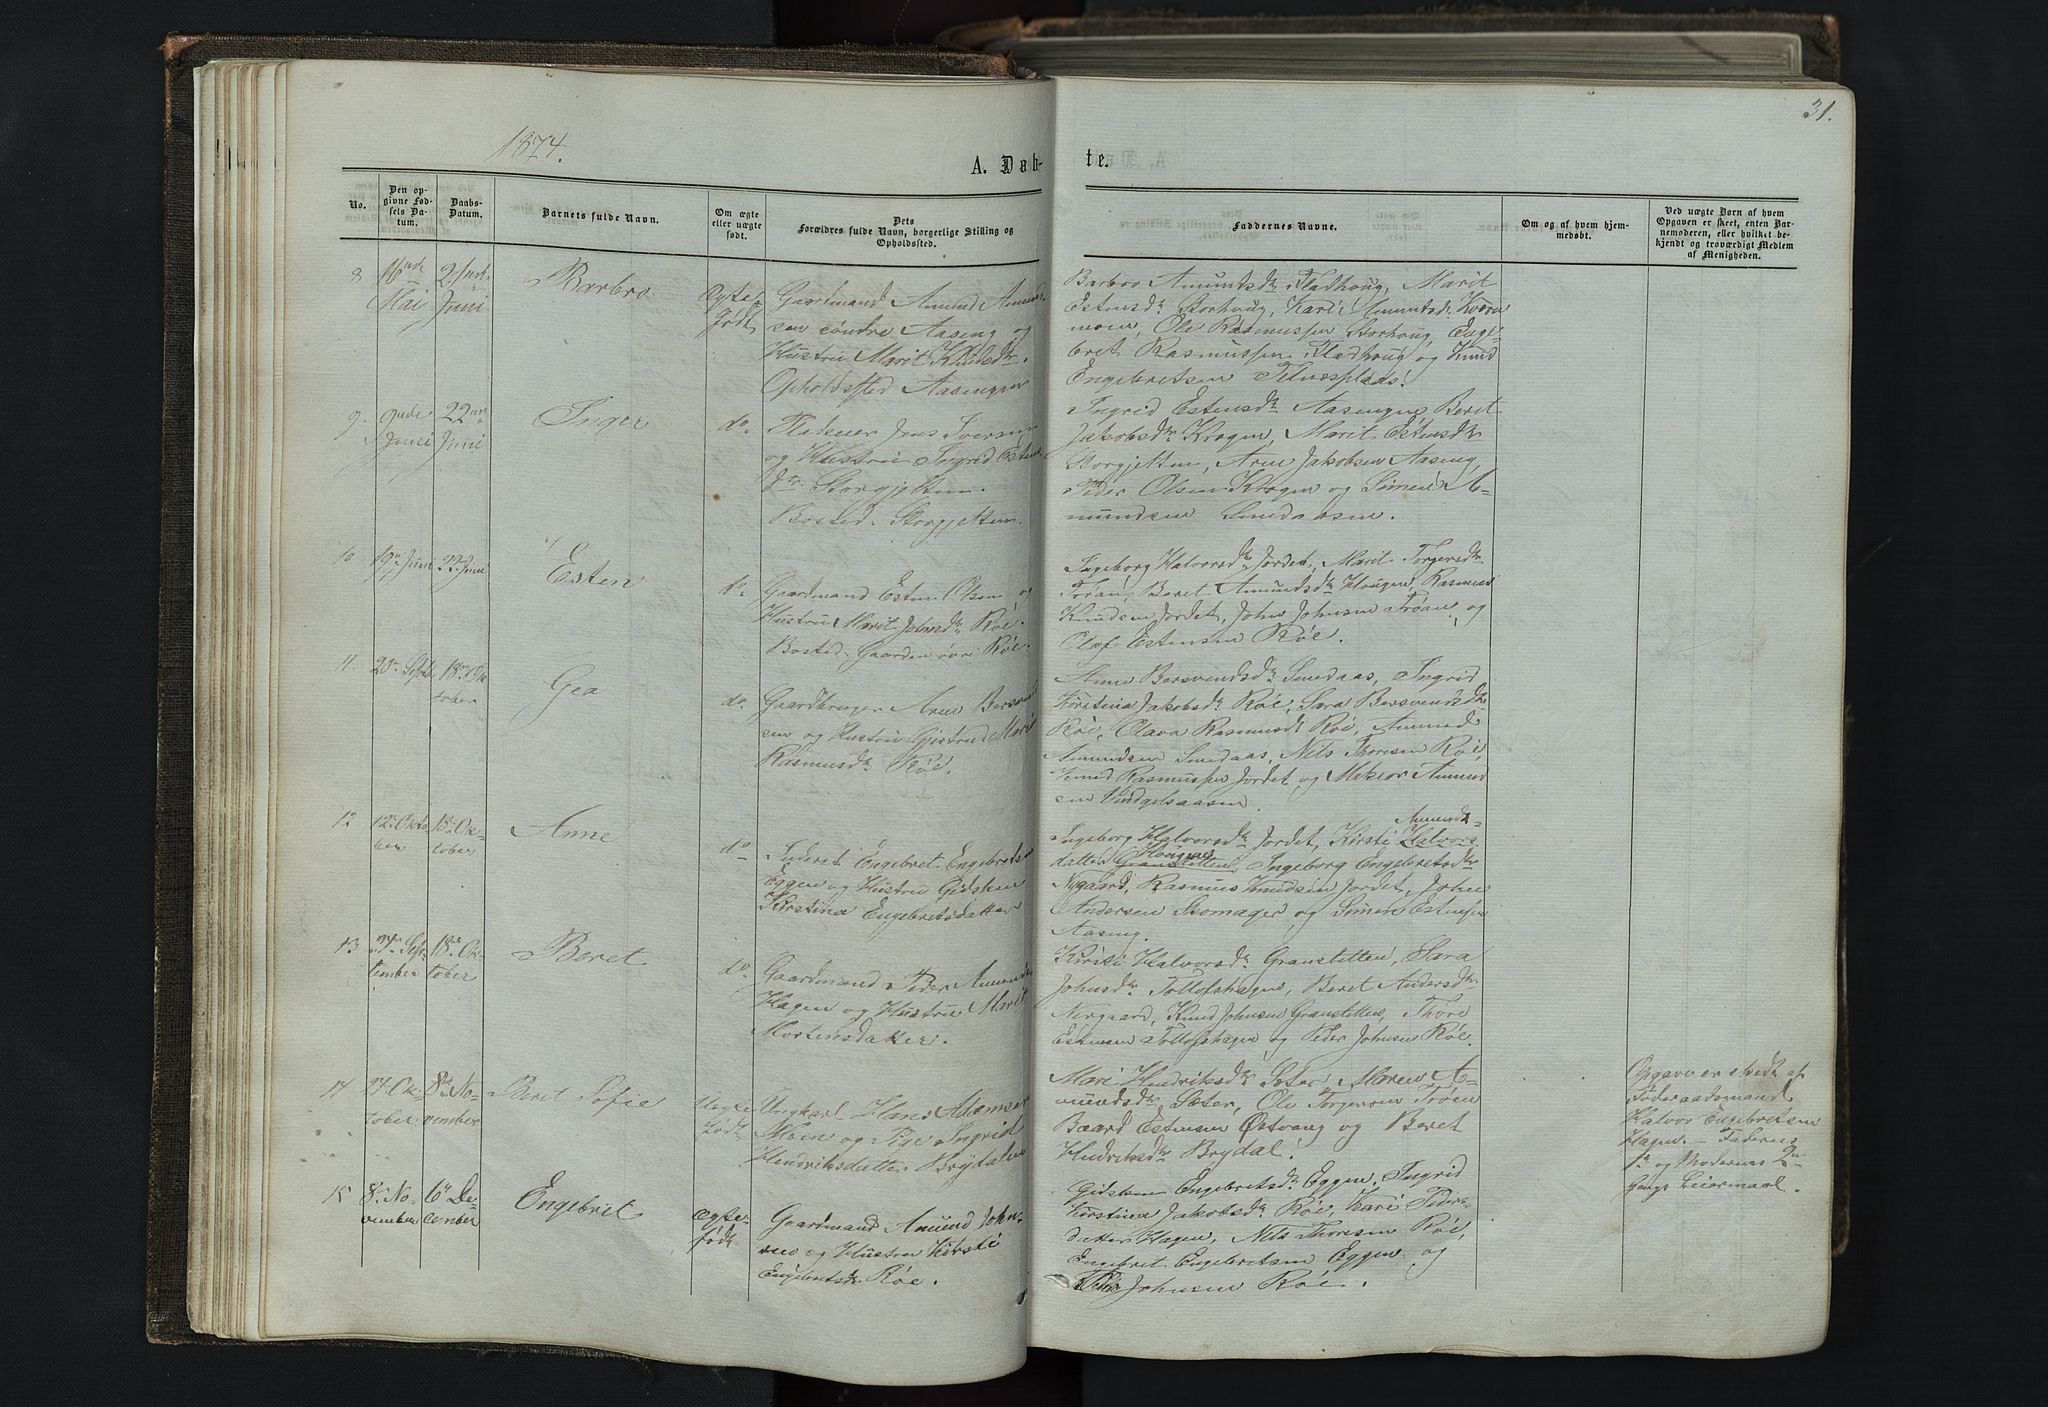 31.
1874.
A. Døb-
te.
No.
Den op-
givne Fød-
sels Da-
tum.
Daabs-
Datum.
Barnets fulde Navn.
Om ægte
eller uægte
født.
Dets
Forældres fulde Navn, borgerlige Stilling og
Opholdssted.
Faddernes Navne.
Om og af hvem hjem-
medøbt.
Ved uægte Børn af hvem
Opgaven er skeet, enten Bar-
nemoderen, eller hvilket be-
kjendt og troværdigt Medlem
af Menigheden.
8
16nde
Mai
2
Juni
Barbro
Ægte-
født
Gaardmand Amund Amund-
sen søndre Aaseng og
Hustru Marit Knudsdtr.
Opholdssted Aasengen
Barbro Amundsdtr Fladhoug, Marit
Estensdtr Storhoug, Kari Amundsdtr Kværn
moen, Ole Rasmussen Storhoug, Enge-
bret Rasmussen Fladhoug og Knud
Engebretsen
9.
9nde
Juni
22
Juni
Inger
do.
Jens Iversen
og Hustru Ingrid Estens
dtr. Storgjetten.
Bosted: Storgjetten.
Ingrid Estensdtr Aasengen, Beret
Jakobsdtr Krogen, Marit Estensdtr
Storgjetten, Arne Jakobsen Aaseng,
Peder Olsen Krogen og Simen A-
mundsen Smedaasen.
10
19de Juni
22. Juni
Esten
do.
Gaardmand Esten Olsen og
Hustru Marit Johnsdtr Røe.
Bosted: Gaarden øvre Røe.
Ingeborg Halvorsdtr Jordet, Marit Torgersdtr
Trøan, Beret Amundsdtr Hougen, Rasmus
Knudsen Jordet, John Johnsen Trøan, og
Olaf Estensen Røe.
11.
20de Septbr.
18de Ok
tober
Gea
do.
Gaardbruger Arne Bersvend
sen og Hustru Gjertrud Marit
Rasmusdtr Røe.
Anne Bersvendsdtr Smedaas, Ingrid
Kirstina Jakobsdtr Røe, Sara Bersvendsdtr
Røe, Olava Rasmusdtr Røe, Amund
Amundsen Smedaas, Nils Thoresen Røe,
Knud Rasmussen Jordet og Mekior Amund
sen Vingelsaasen.
12
12te Okto
ber
18de Ok-
tober
Anne
do
Inderst Engebret Engebretsen
Eggen og Hustru Gidsken
Kirstina Engebretsdatter
Amunds-
Ingeborg Halvorsdtr Jordet, Kirsti Halvors
Hougen
datter Granstetten, Ingeborg Engebretsdtr
Nygaard, Rasmus Knudsen Jordet, John
Andersen Skomager og Simen Estensen
Aaseng.
13
Sep-
tember
18de Ok-
tober
Beret
do
Gaardmand Peder Amundsen
Hagen og Hustru Marit
Mortensdatter.
Kirsti Halvorsdtr Granstetten, Sara
Johnsdtr Tollofshagen, Beret Andersdtr
Nergaard, Knud Johnsen Granstetten, Thore
Estensen Tollofshagen og Peder Johnsen Røe.
14
27. Ok-
tober
8de No-
vember
Beret Sofie
Uægte
født
Ungkarl Hans Adamsen
Moen og Pige Ingrid
Hendriksdatter Brydalen
Mari Hendriksdtr Sæter, Maren A-
mundsdtr Sæter, Ole Torgersen Trøen
Baard Estensen Østvang og Beret
Hendriksdtr Brydal.
Opgaven er skedt af
Føderaadsmand
Halvor Engebretsen
Hagen. – Faderens
1ste og Moderens 2den
Gangs Leiermaal.
15
8de No-
vember
6te De-
cember
Engebret
Ægte-
født
Gaardmand Amund John-
sen og Hustru Kirsti
Engebretsdtr Røe.
Gidsken Engebretsdtr Eggen, Ingrid
Kirstina Jakobsdtr Røe, Kari Peders-
datter Hagen, Nils Thoresen Røe,
Engebret Engebretsen Eggen og
Peder Johnsen Røe.